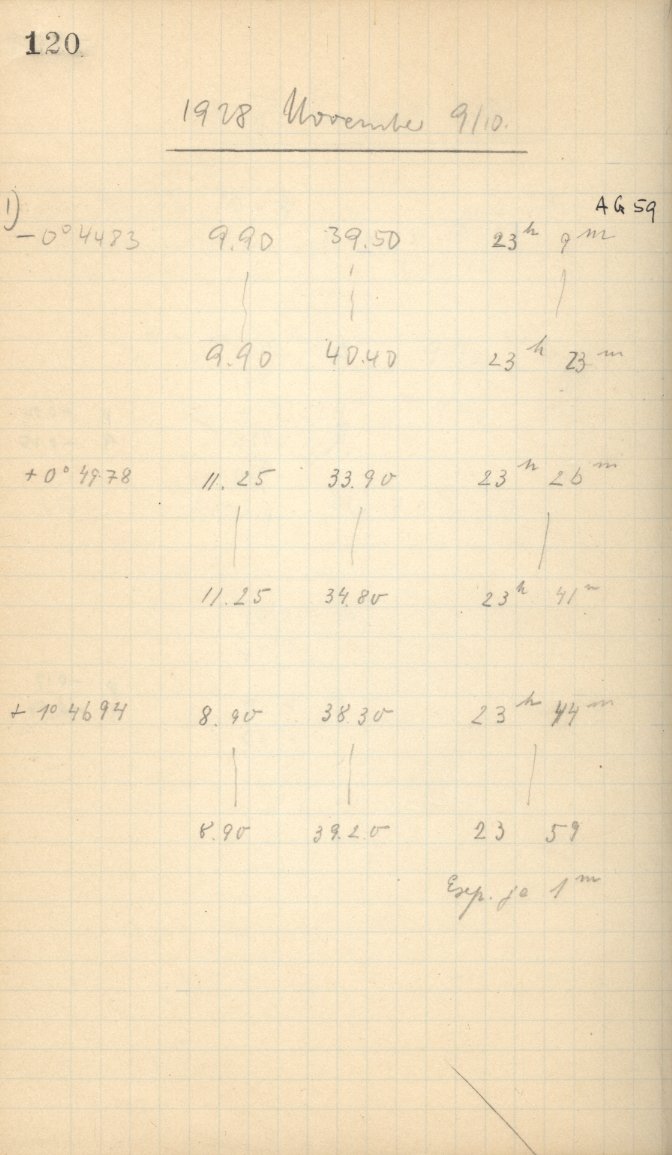 120
1928 November 9/10.
AG 59
1)
-0° 4483 9.90 39.50 23h 9m
9.90 40.40 23h 23m
+0° 4978 11.25 33.90 23h 26m
11.25 34.80 23h 41m
+1° 4694 8.90 38.30 23h 44m
8.90 39.20 23 59
Exp. je 1m